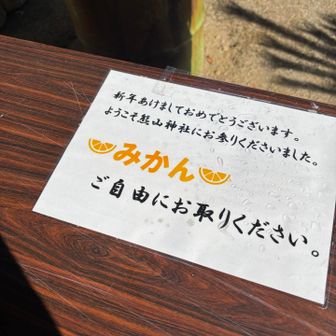 新年あけましておめでとうございます。
ようこそ熊山神社にお参りくださいました。
みかん
ご自由にお取りください。